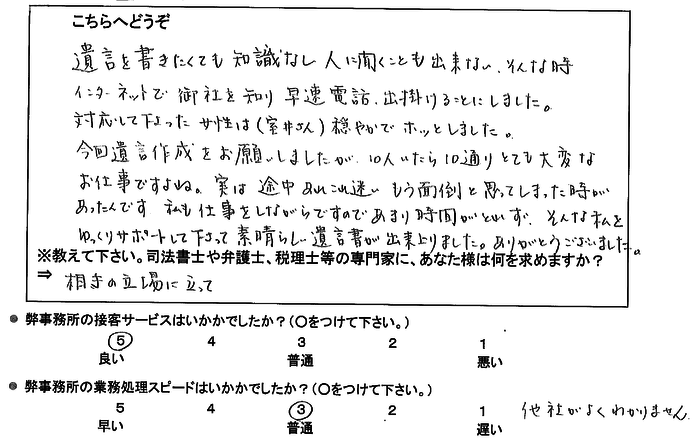 こちらへどうぞ
遺言を書きたくても知識なし人に聞くことも出来ない、そんな時
インターネットで御社を知り早速電話、出掛けることにしました。
対応して下さった女性は(室井さん)穏やかでホッとしました。
今回遺言作成をお願いしましたが、10人いたら10通りとても大変な
お仕事ですよね。実は途中あれこれ迷いもう面倒と思ってしまった時が
あったんです 私も仕事をしながらですのであまり時間がとれず、そんな私を
ゆっくりサポートして下さって素晴らしい遺言書が出来上りました。ありがとうございました。
※教えて下さい。司法書士や弁護士、税理士等の専門家に、あなた様は何を求めますか?
⇒ 相手の立場に立って
● 弊事務所の接客サービスはいかがでしたか?(○をつけて下さい。)
5 4 3 2 1
良い 普通 悪い
● 弊事務所の業務処理スピードはいかがでしたか?(○をつけて下さい。)
5 4 3 2 1 他社がよくわかりません
早い 普通 遅い